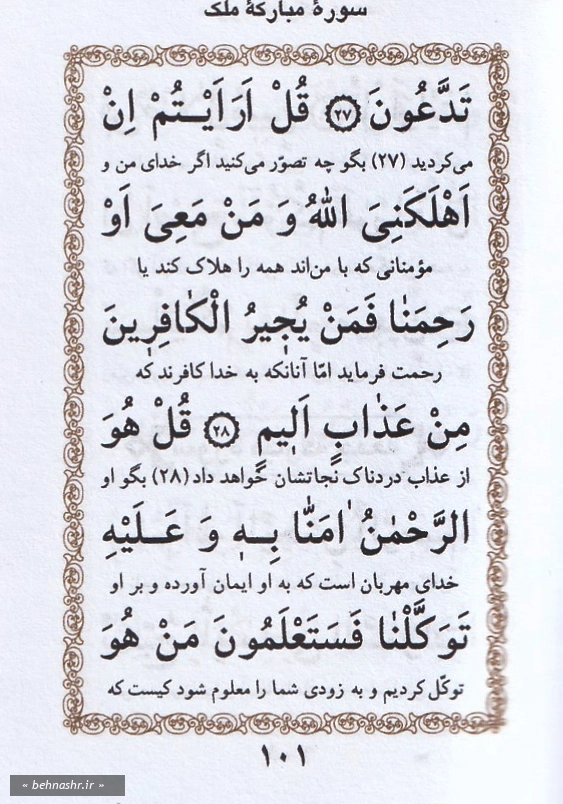 سورهٔ مبارکهٔ ملک
تَدَّعُونَ ﴿۲۷﴾ قُلْ اَرَاَیْـتُمْ اِنْ
می‌کردید (۲۷) بگو چه تصوّر می‌کنید اگر خدای من و
اَهْلَکَنِیَ اللهُ وَ مَنْ مَعِیَ اَوْ
مؤمنانی که با من‌اند همه را هلاک کند یا
رَحِمَنٰا فَمَنْ یُجٖیرُ الْکٰافِرٖینَ
رحمت فرماید امّا آنانکه به خدا کافرند که
مِنْ عَذٰابٍ اَلٖیمٍ ﴿۲۸﴾ قُلْ هُوَ
از عذاب دردناک نجاتشان خواهد داد (۲۸) بگو او
الرَّحْمٰنُ اٰمَنّٰا بِـهٖ وَ عَـلَیْهِ
خدای مهربان است که به او ایمان آورده و بر او
تَوَکَّلْنٰا فَسَتَعْلَمُونَ مَنْ هُوَ
توکّل کردیم و به زودی شما را معلوم شود کیست که
۱۰۱
« behnashr.ir »